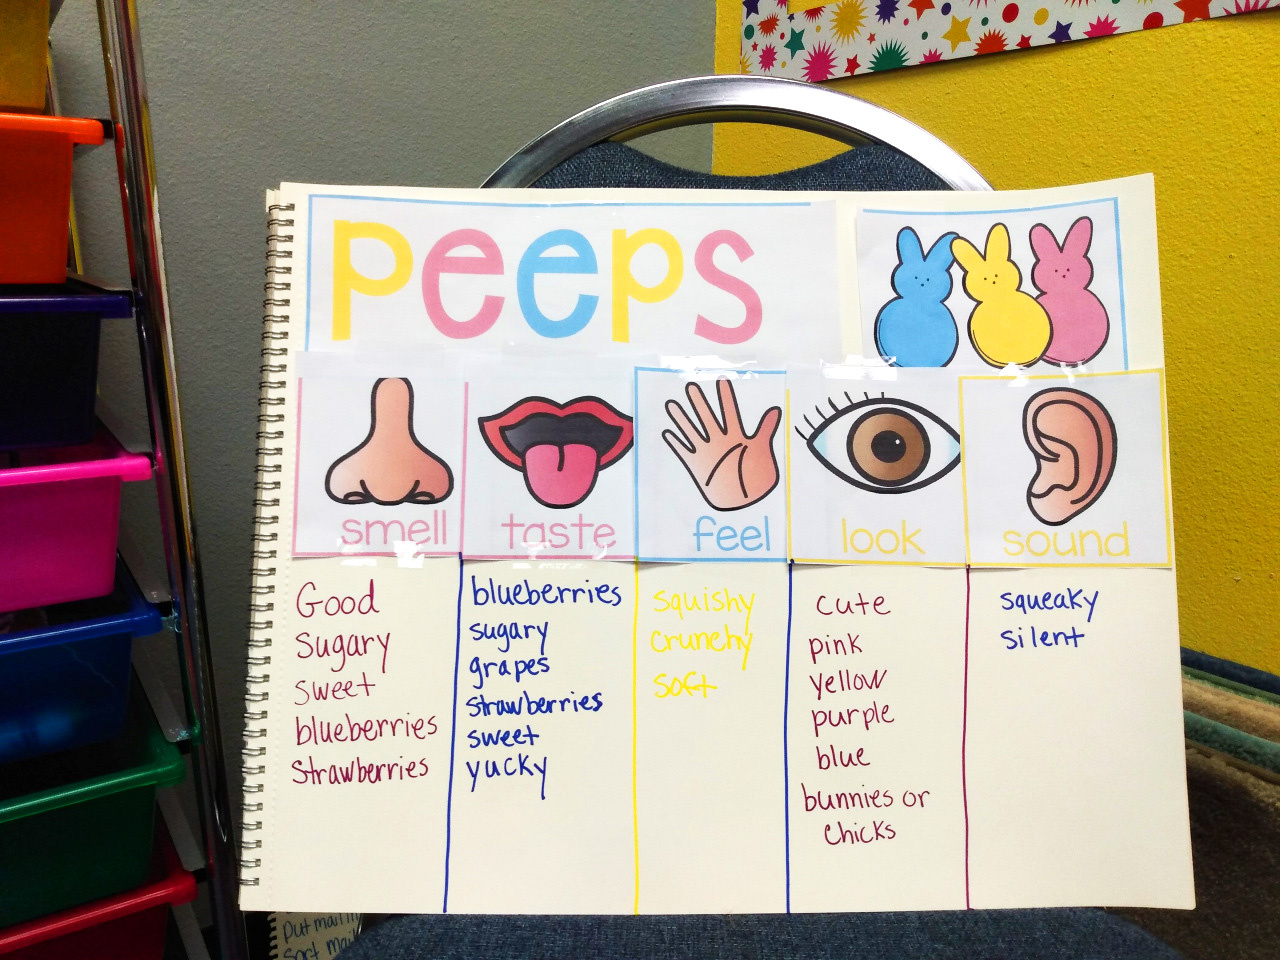 peeps
smell
taste
feel
look
sound
Good
sugary
sweet
blueberries
strawberries
blueberries
sugary
grapes
strawberries
sweet
yucky
squishy
crunchy
soft
cute
pink
yellow
purple
blue
bunnies or
chicks
squeaky
silent
Put mail in
Sort mail